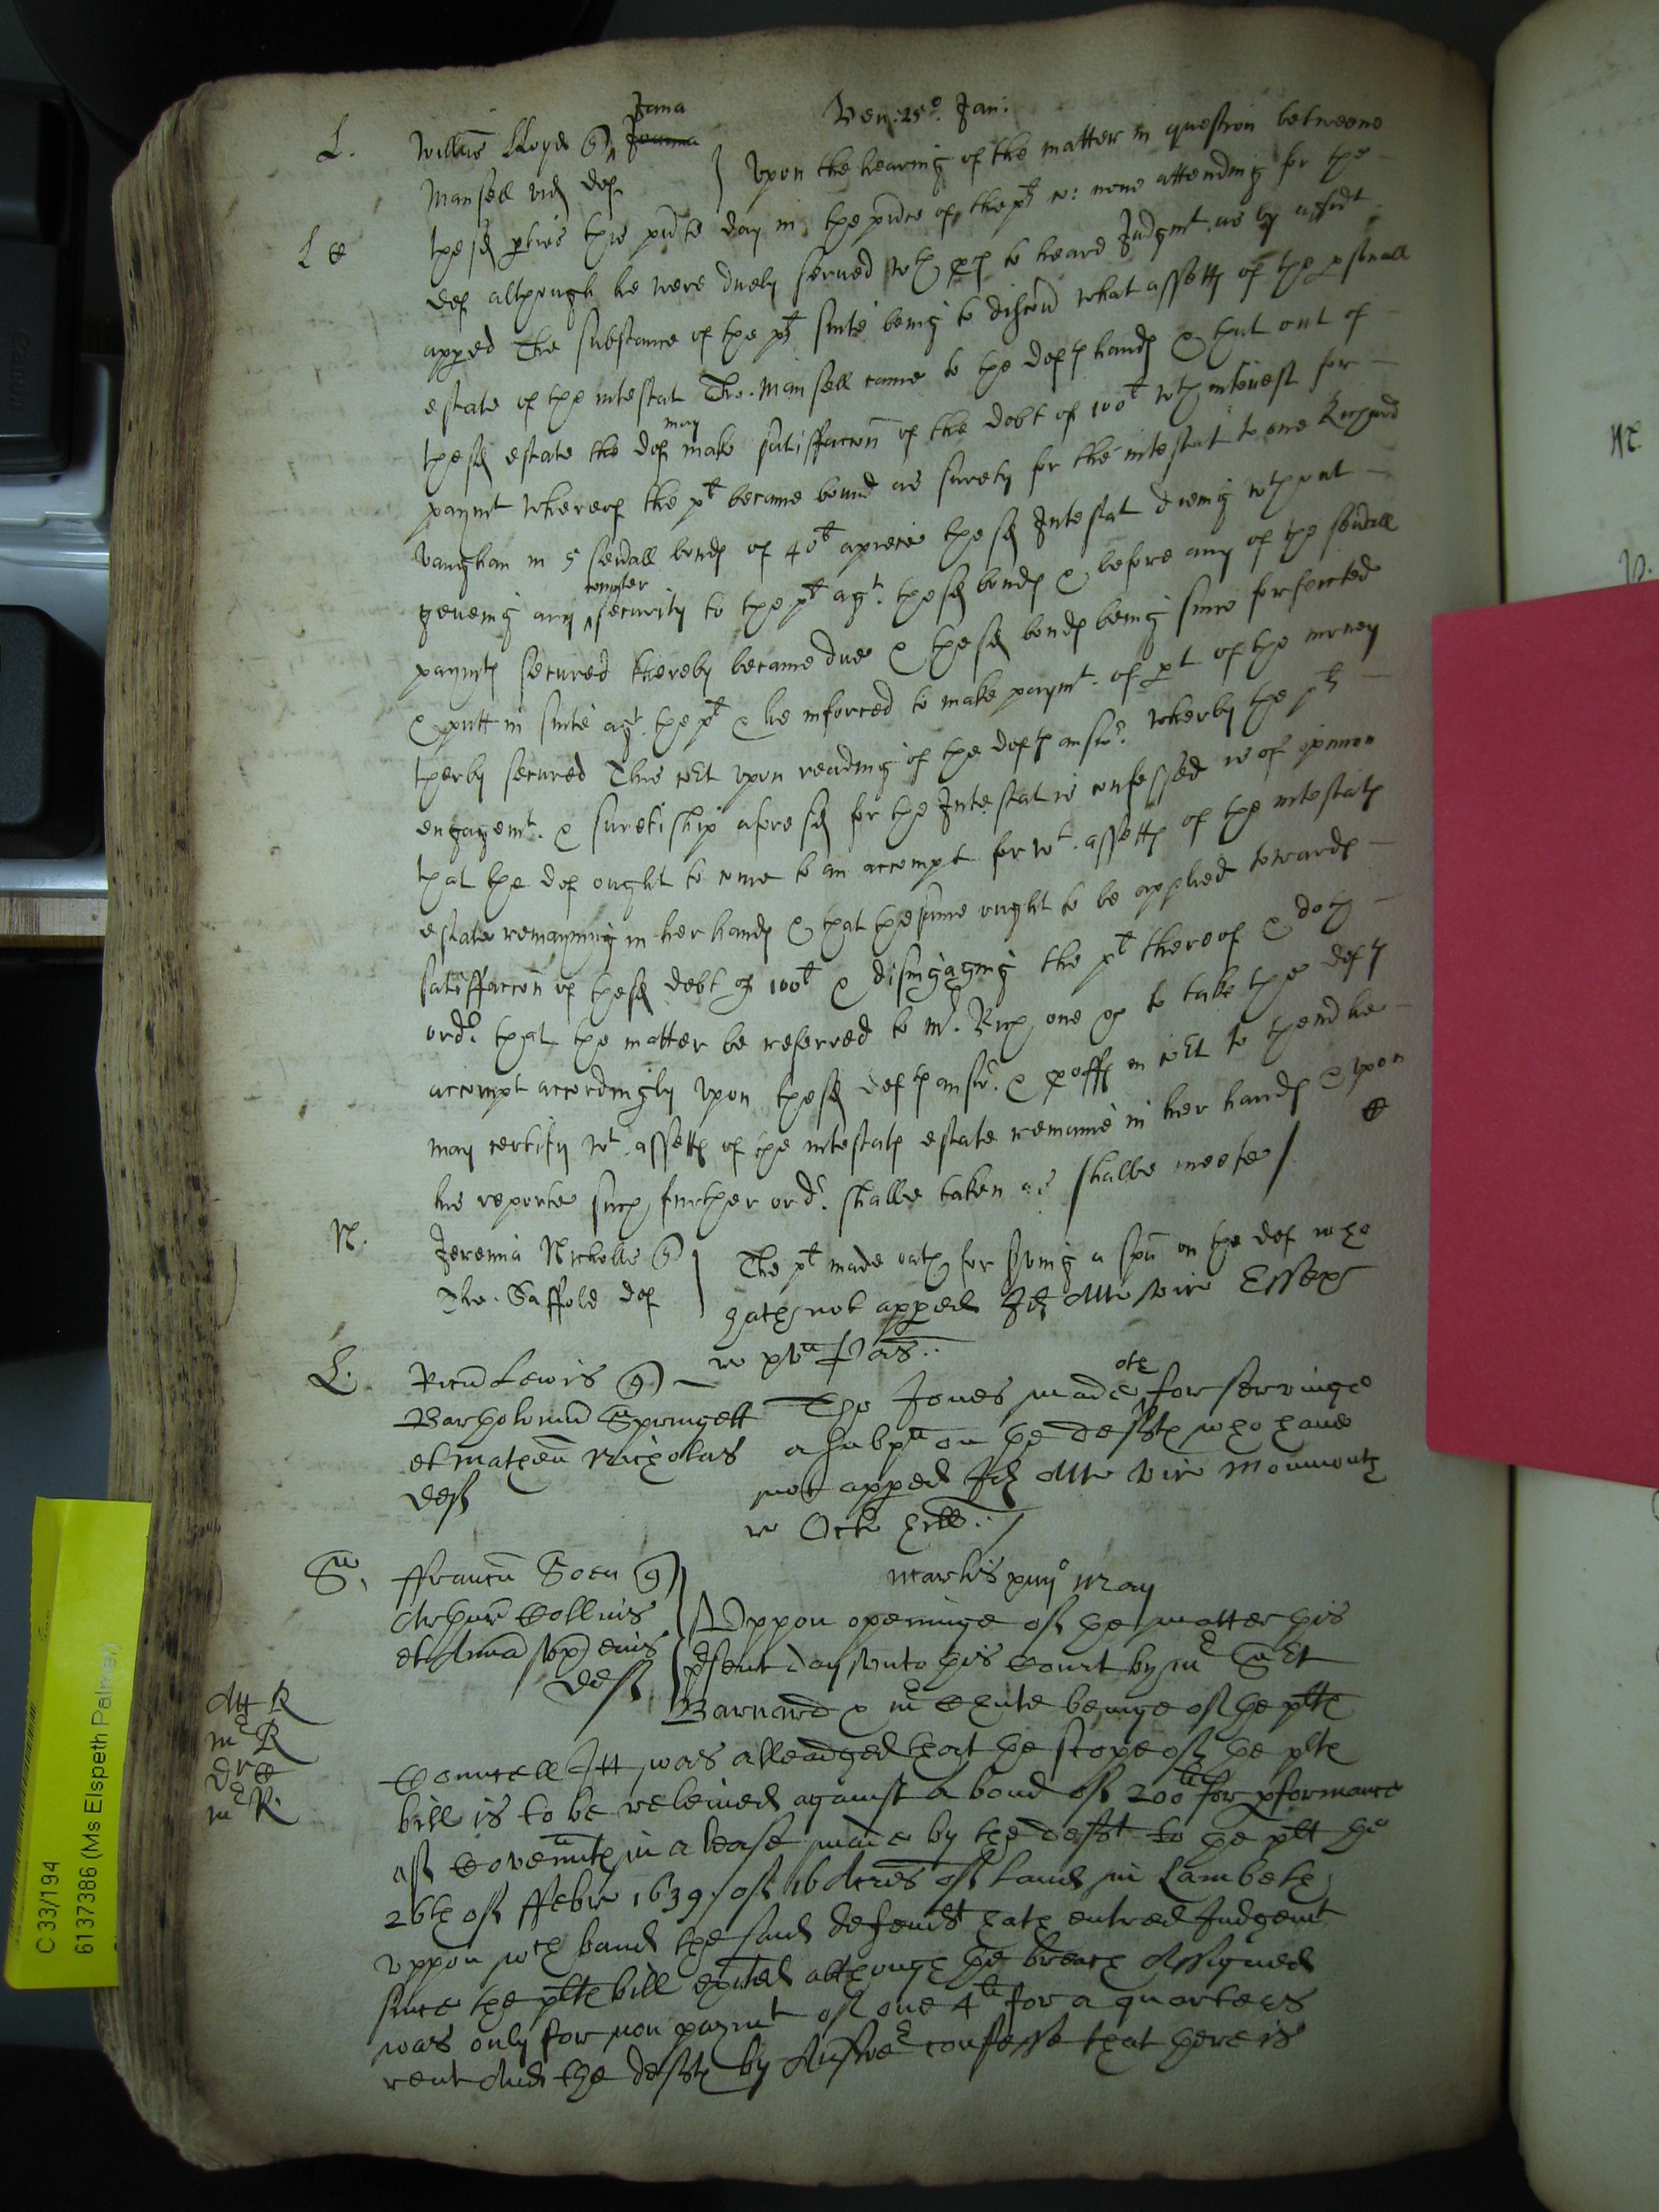 Jana
Ven: 25o. Jan:
L. Willus Lloyd q Joanna
Mansell vid def
Upon the hearing of the matter in question betweene
L
the sd pties this pnte day in the pnce of the plts co: none attending for the
def although he were duely served wth to heare Judgmt as by affidt
appeed The substance of the plts suite being to discou what assetts of the psonall
estate of the intestat Tho. Mansell came to the defts hands & that out of
the sd estate the def may make satisfaccon of the debt of 100l wth interest for
paymt whereof the plt became bound as surety for the intestat to one Richard
Vaughan in 5 seuall bonds of 40l apiece the sd Intestat dieing wthout
geueing any counter security to the plt agt. the sd bonds & before any of the seuall
paymts secured thereby became due & the sd bonds being since forfeited
& putt in suite agt. the plt & he inforced to make paymt. of pt of the money
therby secured This Cot upon reading of the defts answr. wherby the plts
engagemt. & suretiship aforesd for the Intestat is confessed is of opinion
that the def ought to come to an accompt for wt. assetts of the intestats
estate remayning in her hands & that the same ought to be applied towards
satisfaccon of the sd debt of 100l & disingaging the plt thereof & doth
ordr that the matter be referred to Mr. Rich one &c to take the defts
accompt accordingly upon the sd defts answr. & pofes in Cot to thend he
may certify wt. assetts of the intestats estate remaine in her hands & upon
his reporte such further ordr. shalbe taken as shalbe meete
N. Jeremia Nicholls q
Tho. Saffold def
The plt made oath for sving a spa on the def who
hath not appeed Id Att vic Essex
L. Ricus Lewis q
Barholomeu Springett
et Matheu Nicholas
def
Tho Jones made oth for servinge
a subpa on the defts who haue
not appeed Id Att vic Monmouth
r Octo Hill
S. ffrancu q
Arthur Collins
et Anna eius
def
Martis May
Uppon openinge of the matter this
psent day unto this Court by Mr St
Barnard & Mr Chute beinge of the plts
Att R
Mr R
Mr R
Councell Itt was alleadged that the scope of the plts
bill is to be releived against a bond of 200li for pformance
of Covenauts in a lease made by the deft to the plt the
26th of ffebr 1639 of 16 Acres of Land in Lambeth
uppon wch band the said defendt hath entred Judgemt
since the plts bill exhited although the breach Assigned
was only for non paymt of one 4li for a quarters
rent And the defts by Answer confesse that there is
C 33/194
6137386 (Ms Elspeth Palmer)